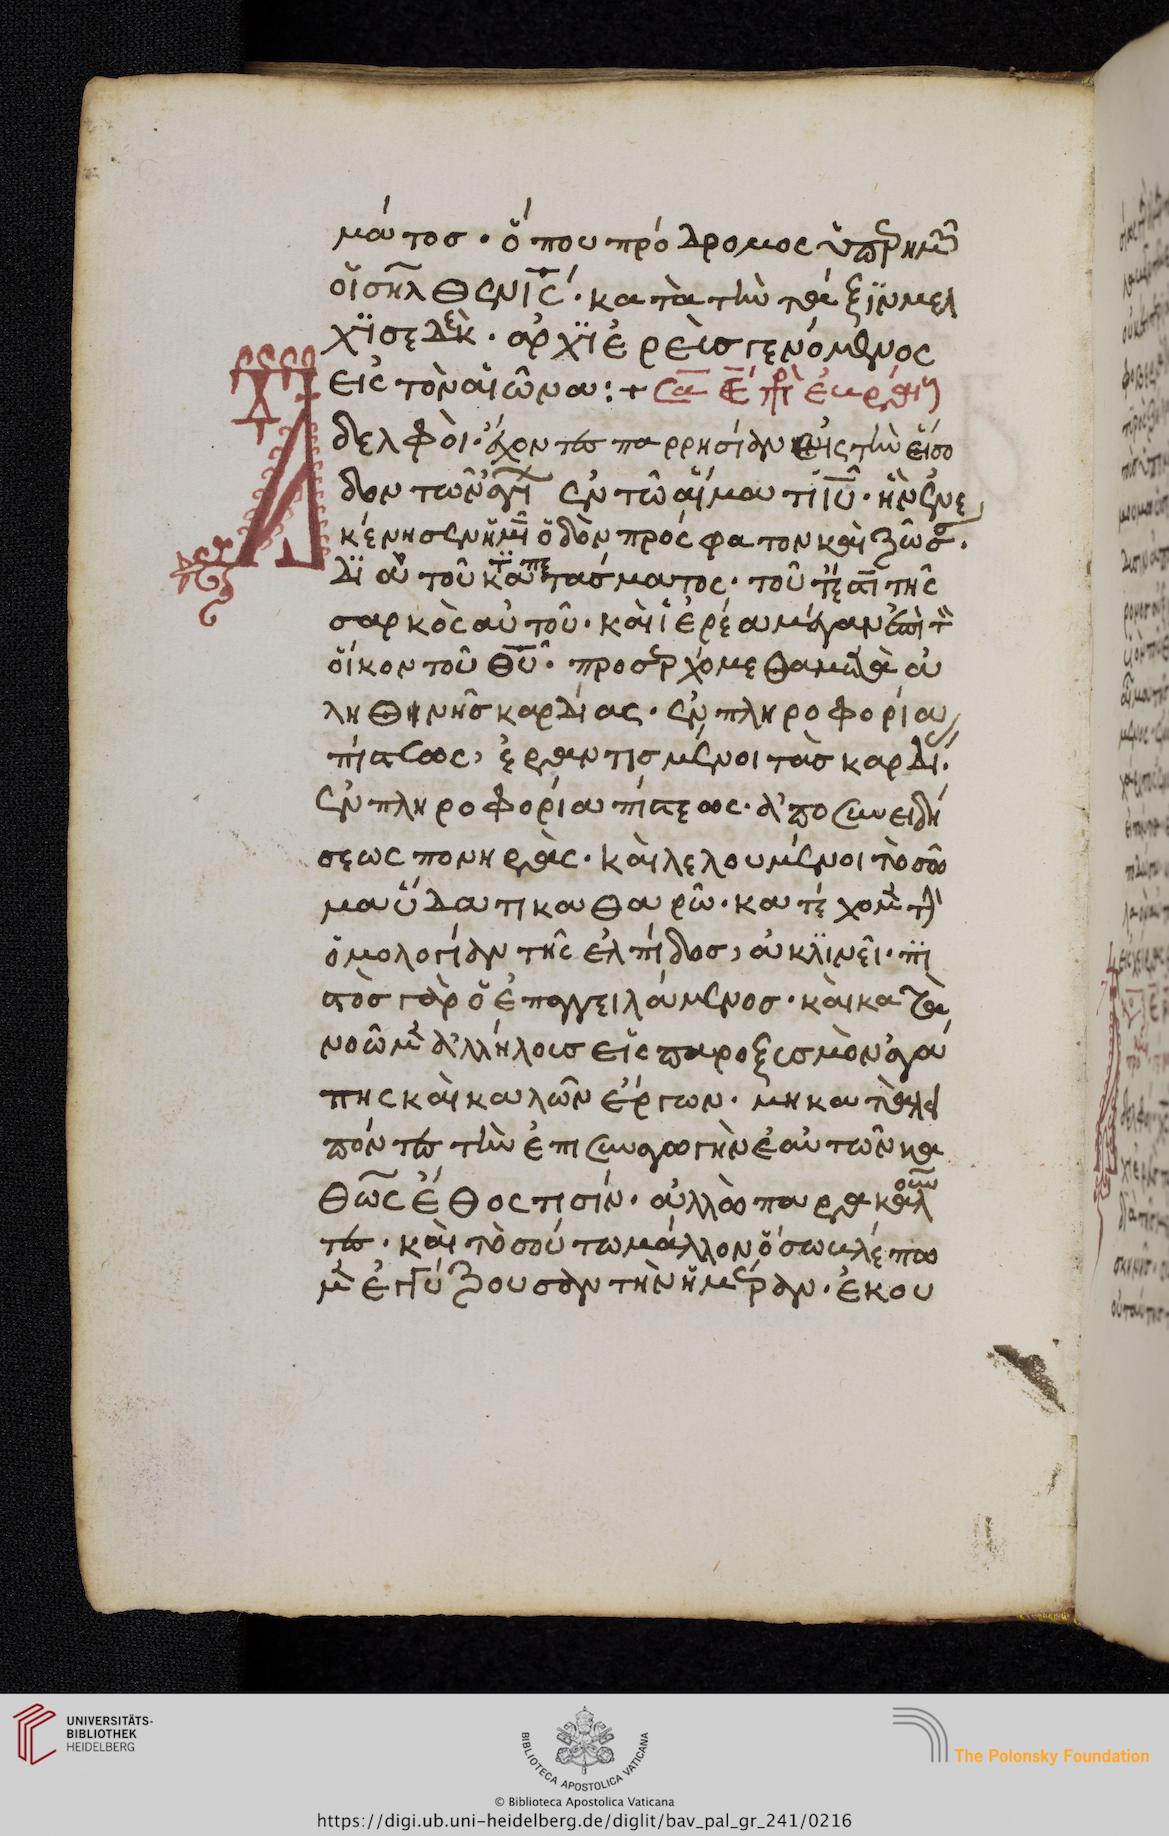 μάτος · ὅπου πρόδρομος ὑπὲρ ἡμῶ
οἰσῆλθεν ι̅ς̅ · κατὰ τὴν τάξιν μελ
χϊσεδὲκ · ἀρχϊἐρεὶς γενόμενος
εἰς τὸν αἰῶνα : + 
δελφοὶ · ἔχοντες παρρησίαν εἰς τὴν εἴσο
δον τῶν ἁγί ἐν τῶ αἵματι ι̅υ̅ · ἣν ἐνε
κένησεν ἡμῖ ὁδὸν πρόσφατον καὶ ζῶσ ·
δϊ αὐτοῦ καταπετάσματος · τοῦτέστι τῆς
σαρκὸς αὐτοῦ · καὶ ἱερέα μέγαν ἐπὶ τὸν
οἶκον τοῦ θ̅υ̅ · προσερχόμεθα μετὰ ἀ
ληθηνῆς καρδίας · ἐν πληροφορία
πίστεως, ἐραντισμένοι τὰς καρδί ·
ἐν πληροφορία πίστεως · ἀπὸ συνειδή
σεως πονηρᾶς · καὶ λελουμένοι τὸ σῶ
μα ὕδατι καθαρῶ · κατέχομεν τὴν
ὁμολογίαν τῆς ἐλπίδος, ἀκλϊνεῖ · πϊ
στὸς γὰρ ὁ ἐπαγγειλάμενος · καὶ κατα
νοῶμεν ἀλλήλοις εἰς παροξισμὸν ἀγά
πης καὶ καλῶν ἔργων · μὴ καταλεί
πόντες τὴν ἐπισυναγωγὴν ἑαυτῶν κα
θῶς ἔθος τισίν · ἀλλὰ παρακαλοῦν
τες · καὶ τὸσούτω μάλλον ὅσω βλέπω
μεν ἐγγύζουσαν τὴν ἡμέραν · ἑκου
UNIVERSITÄTS-
BIBLIOTHEK
HEIDELBERG
BIBLIOTECA APOSTOLICA VATICANA
The Polonsky Foundation
© Biblioteca Apostolica Vaticana
https://digi.ub.uni-heidelberg.de/diglit/bav_pal_gr_241/0216